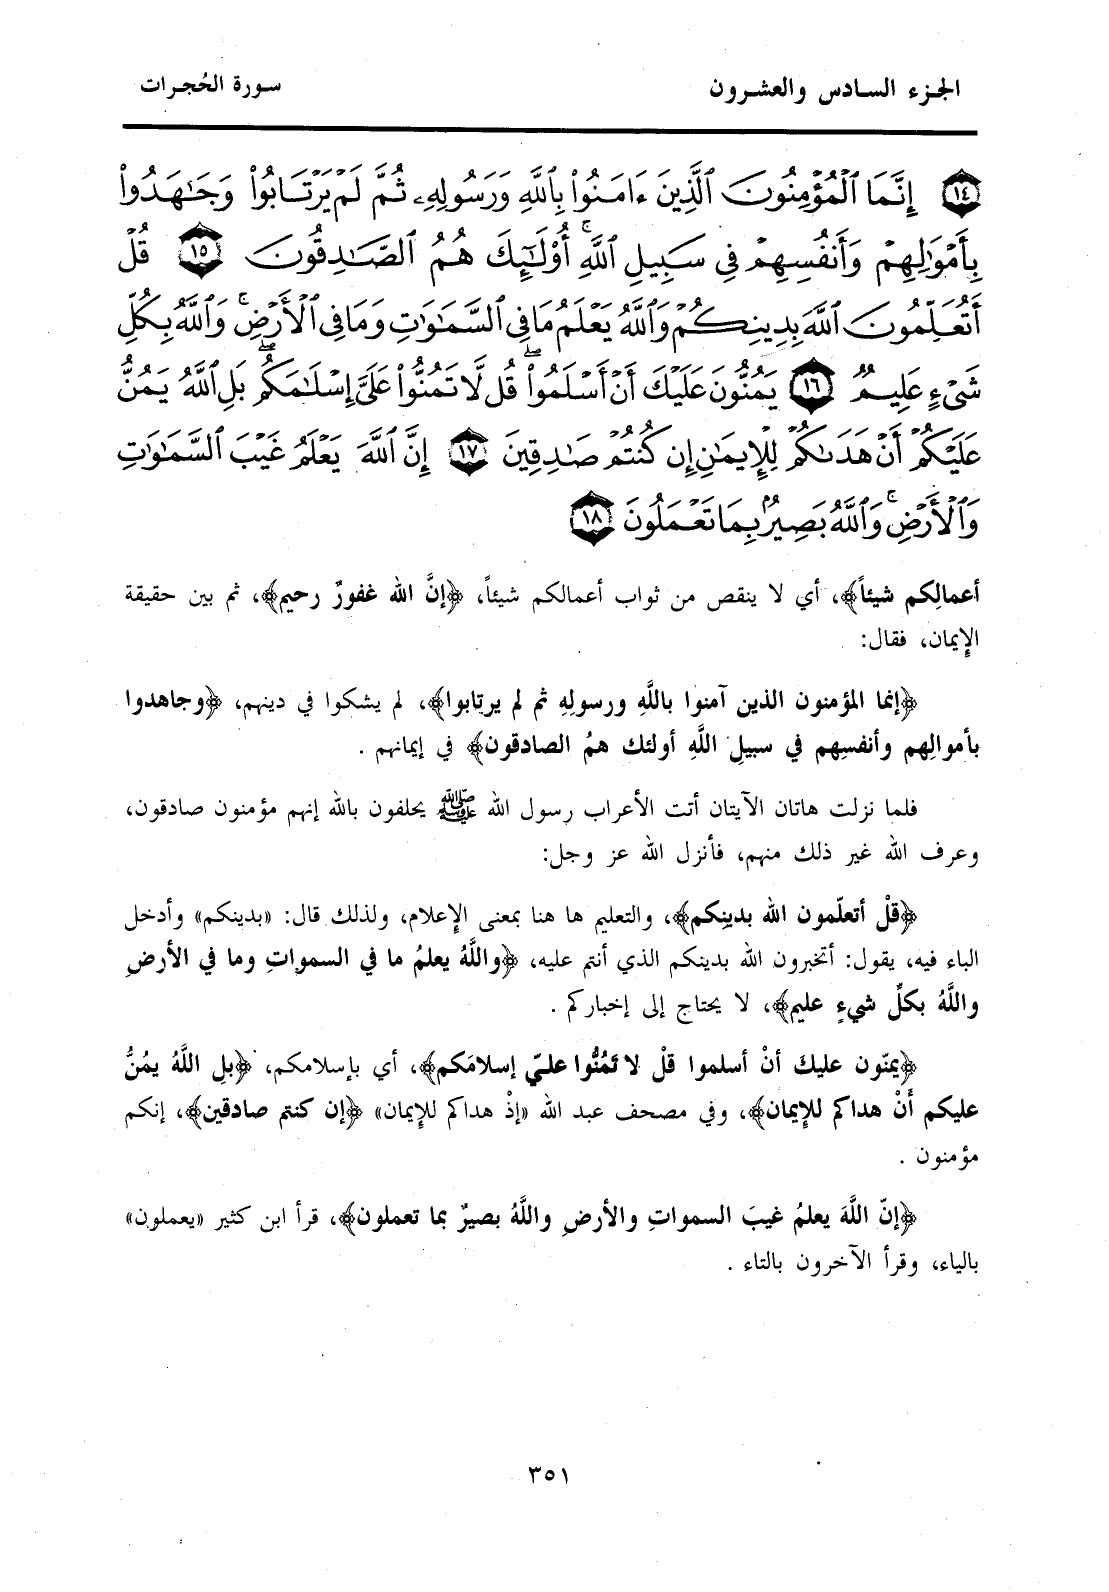 الجزء السادس والعشرون
سورة الحُجرات
١٤ إِنَّمَا ٱلْمُؤْمِنُونَ ٱلَّذِينَ ءَامَنُوا۟ بِٱللَّهِ وَرَسُولِهِۦ ثُمَّ لَمْ يَرْتَابُوا۟ وَجَـٰهَدُوا۟
بِأَمْوَٰلِهِمْ وَأَنفُسِهِمْ فِى سَبِيلِ ٱللَّهِ ۚ أُو۟لَـٰٓئِكَ هُمُ ٱلصَّـٰدِقُونَ ١٥ قُلْ
أَتُعَلِّمُونَ ٱللَّهَ بِدِينِكُمْ وَٱللَّهُ يَعْلَمُ مَا فِى ٱلسَّمَـٰوَٰتِ وَمَا فِى ٱلْأَرْضِ ۚ وَٱللَّهُ بِكُلِّ
شَىْءٍ عَلِيمٌ ١٦ يَمُنُّونَ عَلَيْكَ أَنْ أَسْلَمُوا۟ ۖ قُل لَّا تَمُنُّوا۟ عَلَىَّ إِسْلَـٰمَكُم ۖ بَلِ ٱللَّهُ يَمُنُّ
عَلَيْكُمْ أَنْ هَدَىٰكُمْ لِلْإِيمَـٰنِ إِن كُنتُمْ صَـٰدِقِينَ ١٧ إِنَّ ٱللَّهَ يَعْلَمُ غَيْبَ ٱلسَّمَـٰوَٰتِ
وَٱلْأَرْضِ ۚ وَٱللَّهُ بَصِيرٌۢ بِمَا تَعْمَلُونَ ١٨
أعمالِكم شيئاً﴾، أي لا ينقص من ثواب أعمالكم شيئاً، ﴿إنَّ الله غفورٌ رحيم﴾، ثم بين حقيقة
الإيمان، فقال:
﴿إنما المؤمنون الذين آمنوا باللَّهِ ورسولِهِ ثم لم يرتابوا﴾، لم يشكوا في دينهم، ﴿وجاهدوا
بأموالِهم وأنفسِهم في سبيلِ اللَّهِ أولئك همُ الصادقون﴾ في إيمانهم .
فلما نزلت هاتان الآيتان أتت الأعراب رسول الله ﷺ يحلفون بالله إنهم مؤمنون صادقون،
وعرف الله غير ذلك منهم، فأنزل الله عز وجل:
﴿قلْ أتعلّمون الله بدينِكم﴾، والتعليم ها هنا بمعنى الإعلام، ولذلك قال: «بدينكم» وأدخل
الباء فيه، يقول: أتخبرون الله بدينكم الذي أنتم عليه، ﴿واللَّهُ يعلمُ ما في السمواتِ وما في الأرضِ
واللَّهُ بكلِّ شيءٍ عليم﴾، لا يحتاج إلى إخباركم .
﴿يمنّون عليكَ أنْ أسلموا قلْ لا تَمُنُّوا عليّ إسلامَكم﴾، أي بإسلامكم، ﴿بلِ اللَّهُ يمُنُّ
عليكم أَنْ هداكم للإيمان﴾، وفي مصحف عبد الله «إذْ هداكم للإيمان» ﴿إن كنتم صادقين﴾، إنكم
مؤمنون .
﴿إنّ اللَّهَ يعلمُ غيبَ السمواتِ والأرضِ واللَّهُ بصيرٌ بما تعملون﴾، قرأ ابن كثير «يعملون»
بالياء، وقرأ الآخرون بالتاء .
٣٥١